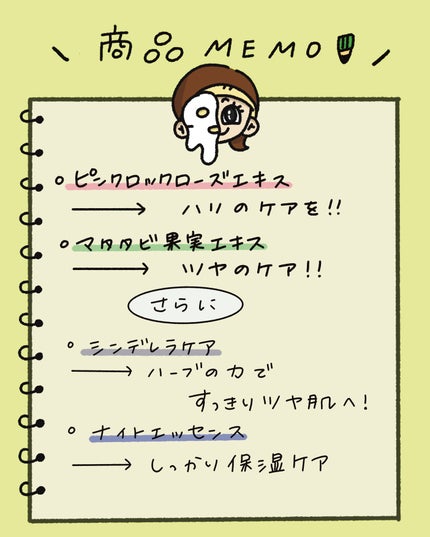 \ 商品 MEMO /
○ ピンクロックローズエキス
→ ハリのケアを!!
○ マタタビ果実エキス
→ ツヤのケア!!
さらに
○ シンデレラケア
→ ハーブの力で
すっきりツヤ肌へ!
○ ナイトエッセンス
→ しっかり保湿ケア